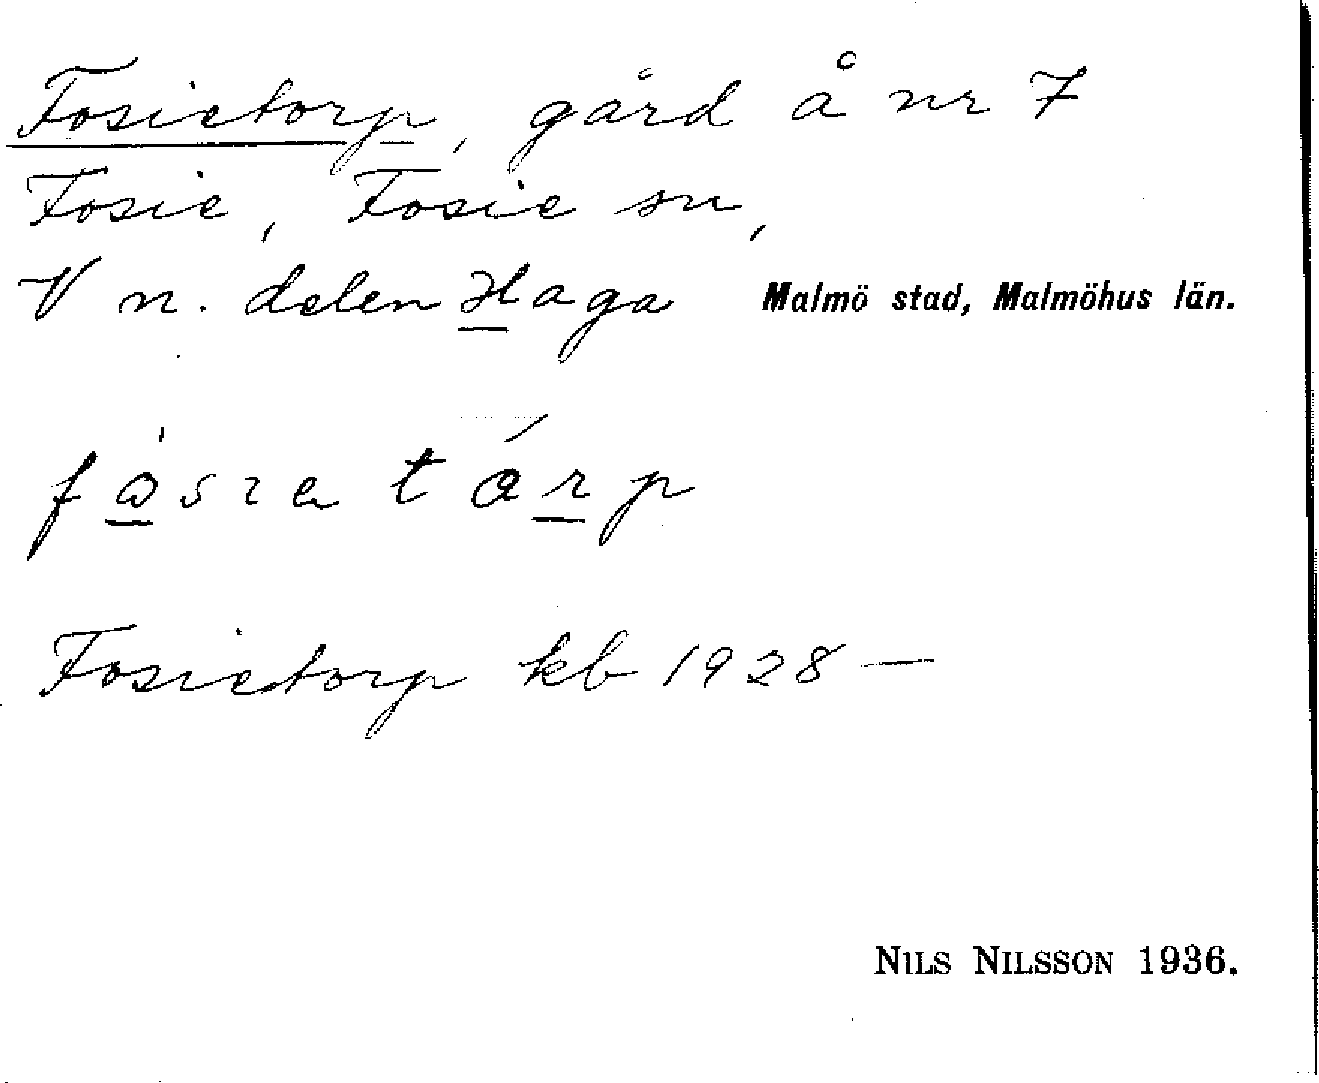 Fosietorp, gård å nr 7
Fosie, Fosie sn,
V n. delen Haga Malmö stad, Malmöhus län.
Fosietorp kb 1928—
NILS NILSSON 1936.